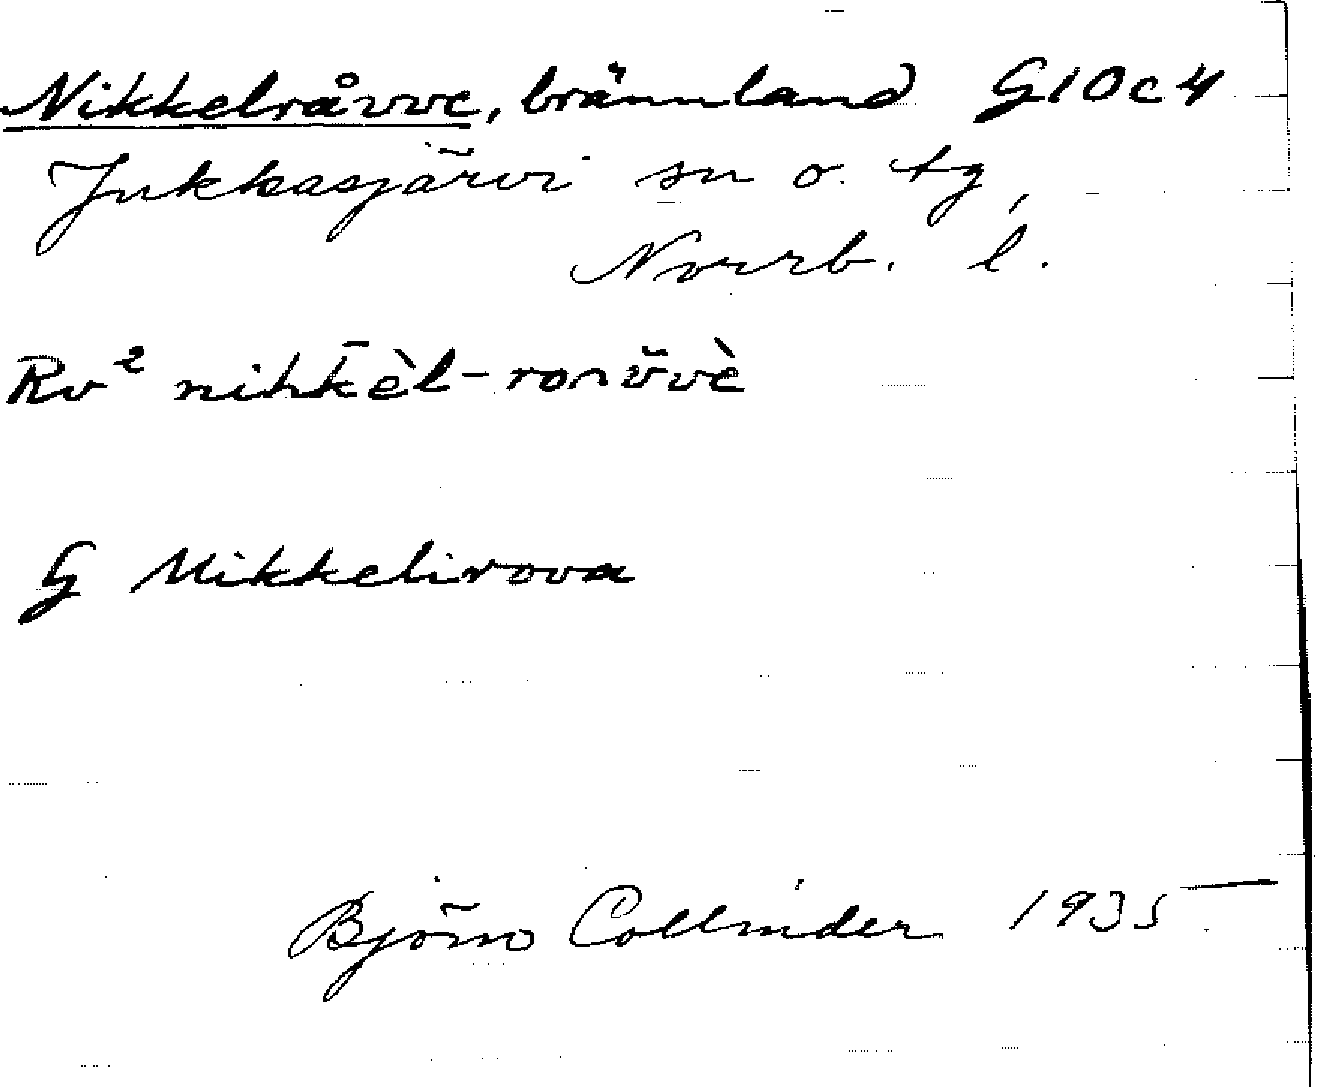 Nikkelråvve, brännland G10c4
Jukkasjärvi sn o. tg,
Norrb. l.
Rv² nihk̄èl-ronv̌vè
G Mikkelirova
Björn Collinder 1935